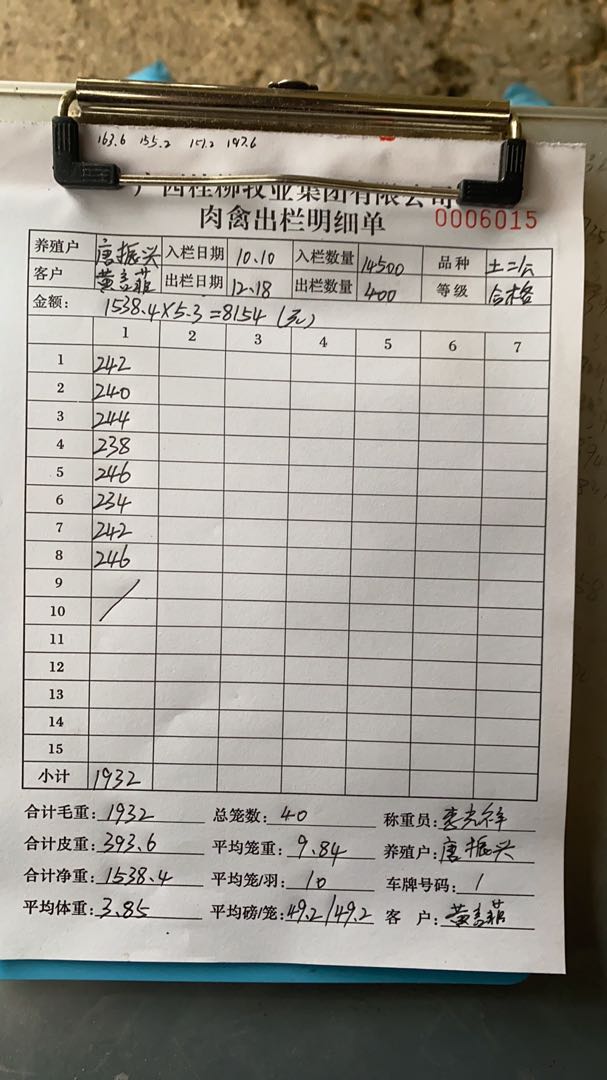 163.6 155.2 151.2 147.6
广西桂柳牧业集团有限公司
肉禽出栏明细单 0006015
养殖户 唐振兴 入栏日期 10.10 入栏数量 14500 品种 土二公
客户 黄言菲 出栏日期 12.18 出栏数量 400 等级 合格
金额: 1538.4×5.3=8154（元）
1 2 3 4 5 6 7
1 242
2 240
3 244
4 238
5 246
6 234
7 242
8 246
9
10
11
12
13
14
15
小计 1932
合计毛重: 1932 总笼数: 40 称重员:
合计皮重: 393.6 平均笼重: 9.84 养殖户: 唐振兴
合计净重: 1538.4 平均笼/羽: 10 车牌号码: /
平均体重: 3.85 平均磅/笼: 49.2/49.2 客 户: 黄言菲